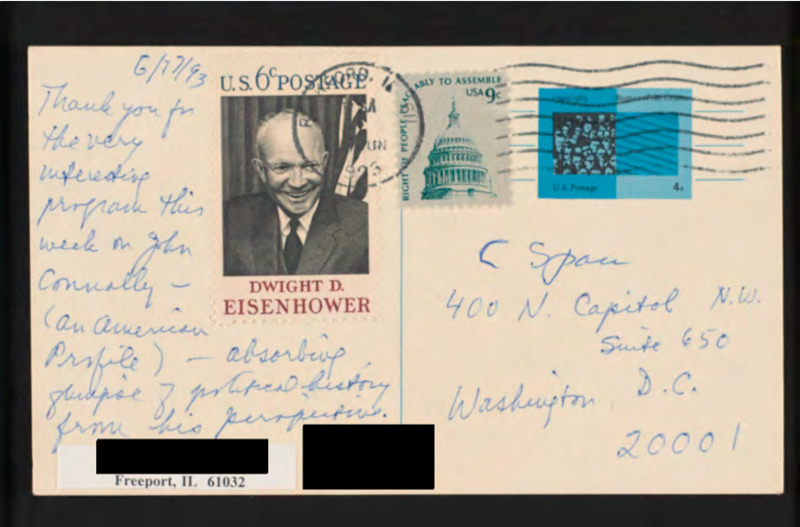 6/17/93
Thank you for
the very
interesting
program this
week on John
Connally –
(an American
Profile) – absorbing
glimpse of political history
from his perspective.
Freeport, IL 61032
U.S. 6c POSTAGE
DWIGHT D.
EISENHOWER
RIGHT OF PEOPLE PEACEABLY TO ASSEMBLE
USA 9c
JUN
1993
U.S. Postage
4c
C Span
400 N. Capitol N.W.
Suite 650
Washington, D.C.
20001